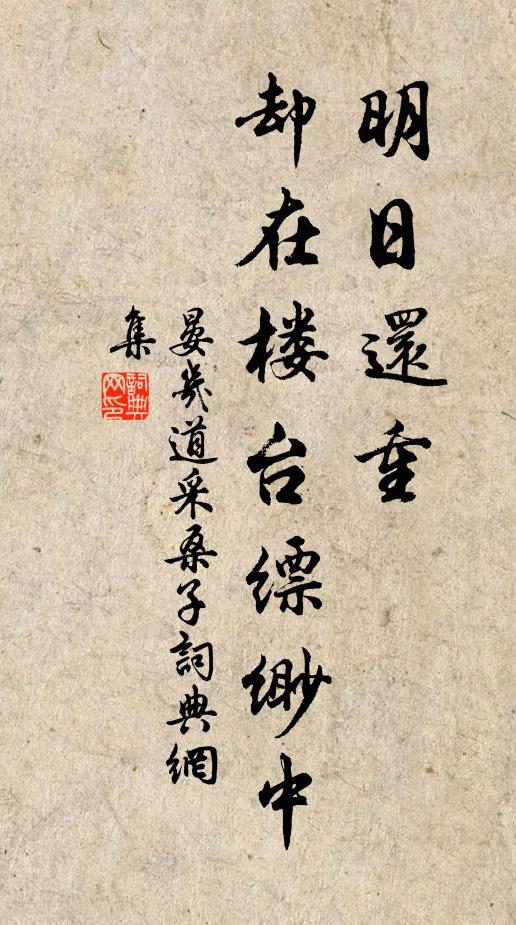 明日還重
却在楼台缥缈中
晏几道采桑子詞典網
集
詞典
网印